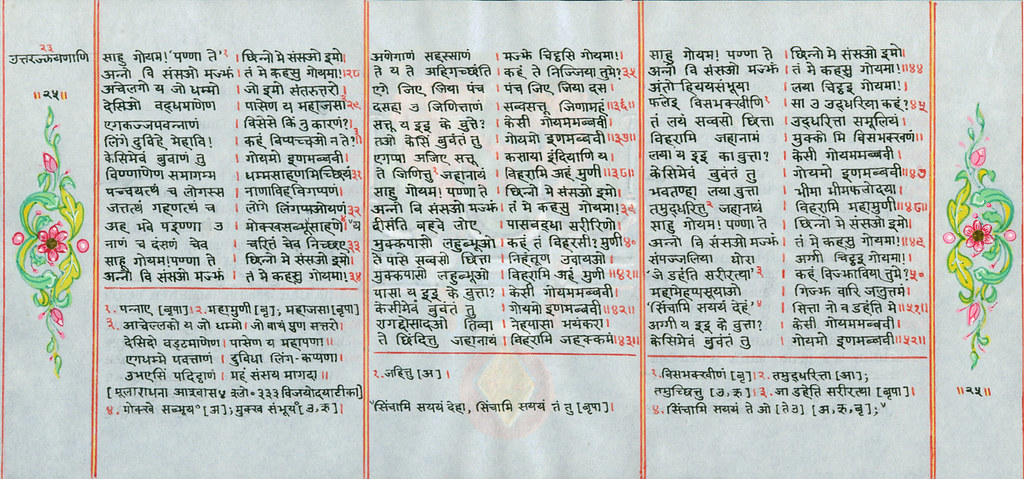 २३
उत्तरज्झयणाणि
॥२५॥
साहु गोयम! पण्णा ते१ । छिन्नो मे संसओ इमो।
अन्नो वि संसओ मज्झं । तं मे कहसु गोयमा!।२८
अचेलगो य जो धम्मो । जो इमो संतरुत्तरो।
देसिओ वद्धमाणेण । पासेण य महाजसा२।२९
एगकज्जपवन्नाणं । विसेसे किं नु कारणं?।
लिंगे दुविहे मेहावि! । कहं विप्पच्चओ न ते?।
केसिमेवं बुवाणं तु । गोयमो इणमब्बवी।
विण्णाणेण समागम्म । धम्मसाहणमिच्छियं।३१
पच्चयत्थं च लोगस्स । नाणाविहविगप्पणं।
जत्तत्थं गहणत्थं च । लोगे लिंगप्पओयणं।३२
अह भवे पइण्णा उ । मोक्खसब्भूयसाहणे४।
नाणं च दंसणं चेव । चरित्तं चेव निच्छए।३३
साहु गोयम! पण्णा ते । छिन्नो मे संसओ इमो।
अन्नो वि संसओ मज्झं । तं मे कहसु गोयमा!।३४
१. पन्नाए [बृपा] २. महामुणी [बृ]; महाजसा [बृपा]
३. आचेलक्को य जो धम्मो । जो वायं पुण सत्तरो।
देसिदो वड्ढमाणेण । पासेण य महप्पणा।
एगधम्मे पवत्ताणं । दुविधा लिंग-कप्पणा।
उभएसिं पदिट्ठाणं । महं संसय मागदा॥
[मूलाराधना आश्वास४ श्लो० ३३३ विजयोदयाटीका]
४. मोक्खे सब्भूय० [अ]; मुक्ख संभूय० [उ, ऋ]।
अणेगाणं सहस्साणं । मज्झे चिट्ठसि गोयमा!।
ते य ते अहिगच्छंति । कहं ते निज्जिया तुमे?।३५
एगे जिए जिया पंच । पंच जिए जिया दस।
दसहा उ जिणित्ताणं । सव्वसत्तू जिणामहं॥३६॥
सत्तू य इइ के वुत्ते? । केसी गोयममब्बवी।
तओ केसिं बुवंतं तु । गोयमो इणमब्बवी॥३७॥
एगप्पा अजिए सत्तू । कसाया इंदियाणि य।
ते जिणित्तु२ जहानायं । विहरामि अहं मुणी॥३८॥
साहु गोयम! पण्णा ते । छिन्नो मे संसओ इमो।
अन्नो वि संसओ मज्झं । तं मे कहसु गोयमा!।३९
दीसंति बहवे लोए । पासबद्धा सरीरिणो।
मुक्कपासो लहुब्भूओ । कहं तं विहरसी? मुणी।४०
ते पासे सव्वसो छित्ता । निहंतूण उवायओ।
मुक्कपासो लहुब्भूओ । विहरामि अहं मुणी॥४१॥
पासा य इइ के वुत्ता? । केसी गोयममब्बवी।
केसीमेवं बुवंतं तु । गोयमो इणमब्बवी॥४२॥
रागद्दोसादओ तिव्वा । नेहपासा भयंकरा।
ते छिंदित्तु जहानायं । विहरामि जहक्कमं॥४३॥
२. जहित्तु [अ]।
"सिंचामि सययं देहा, सिंचामि सययं तं तु [बृपा]।
साहु गोयम! पण्णा ते । छिन्नो मे संसओ इमो।
अन्नो वि संसओ मज्झं । तं मे कहसु गोयमा!॥४४
अंतो हिययसंभूया । लया चिट्ठइ गोयमा!।
फलेइ विसभक्खीणि१ । सा उ उद्धरिया कहं?।४५
तं लयं सव्वसो छित्ता । उद्धरित्ता समूलियं।
विहरामि जहानायं । मुक्को मि विसभक्खणं।
लया य इइ का वुत्ता? । केसी गोयममब्बवी।
केसिमेवं बुवंतं तु । गोयमो इणमब्बवी॥४७
भवतण्हा लया वुत्ता । भीमा भीमफलोदया।
तमुद्धरित्तु२ जहानायं । विहरामि महामुणी॥४८॥
साहु गोयम! पण्णा ते । छिन्नो मे संसओ इमो।
अन्नो वि संसओ मज्झं । तं मे कहसु गोयमा!॥४९
संपज्जलिया घोरा । अग्गी चिट्ठइ गोयमा!।
'जे डहंति सरीरत्था'३ । कहं विज्झाविया तुमे?।५०
महामेहप्पसूयाओ । गिज्झ वारि जलुत्तमं।
'सिंचामि सययं देहं'४ । सित्ता नो व डहंति मे॥५१॥
अग्गी य इइ के वुत्ता? । केसी गोयममब्बवी।
केसिमेवं बुवंतं तु । गोयमो इणमब्बवी॥५२॥
१. विसभक्खीणं [बृ]। २. तमुद्धरित्ता [आ];
तमुच्छित्तु [उ, ऋ]। ३. जा डहेति सरीरत्था [बृपा]।
४. सिंचामि सययं ते ओ [तेउ] [अ, ऋ, बृ];"
॥२५॥